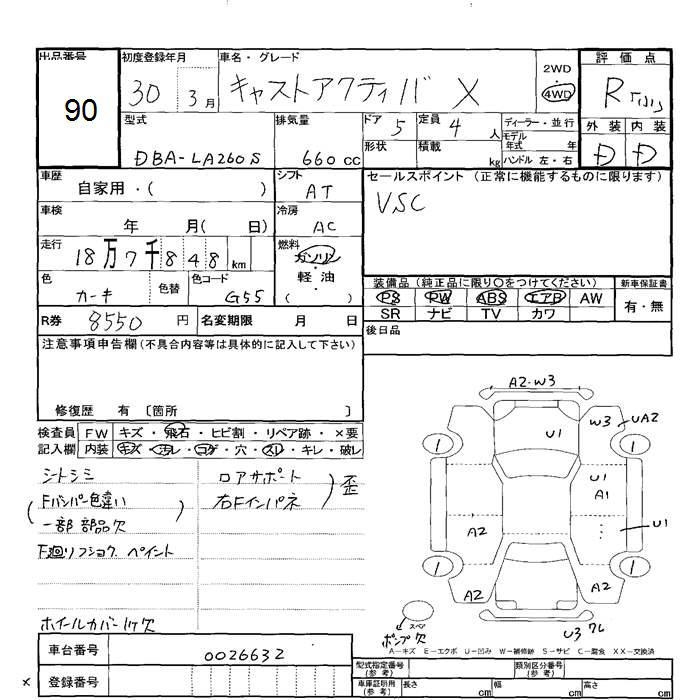 出品番号 初度登録年月 車名・グレード 評価点
90 30 3月 キャストアクティバ X 2WD 4WD R
型式 排気量 ドア 5 定員 4人 ディーラー・並行 外装 内装
形状 積載 kg モデル年式 年
DBA-LA260S 660cc ハンドル 左・右 D D
車歴 自家用・( ) シフト AT セールスポイント (正常に機能するものに限ります)
VSC
車検 年 月( 日) 冷房 AC
走行 18万7千848km 燃料 ガソリン・軽油・( )
色 カーキ 色替 色コード G55
装備品(純正品に限り〇をつけてください) 新車保証書
PS PW ABS エアB AW 有・無
SR ナビ TV カワ
R券 8550円 名変期限 月 日 後日品
注意事項申告欄(不具合内容等は具体的に記入して下さい)
修復歴 有 〔箇所 〕
検査員 FW キズ・飛石・ヒビ割・リペア跡・×要
記入欄 内装 キズ・汚レ・コゲ・穴・スレ・キレ・破レ
シートシミ
Fバンパー色違い
一部部品欠
F廻リフショク ペイント
ホイールカバー1ケ欠
ロアサポート
右Fインパネ
歪
A2・W3
U1
W3 UA2
1 1
U1
A1
A2 U1
1 1
A2 A2
スペア
ポンプ欠 U3ワレ
A-キズ E-エクボ U-凹み W-補修跡 S-サビ C-腐食 XX-交換済
車台番号 0026632
型式指定番号(参考) 類別区分番号(参考)
× 登録番号
車庫証明用(参考) 長さ cm 幅 cm 高さ cm